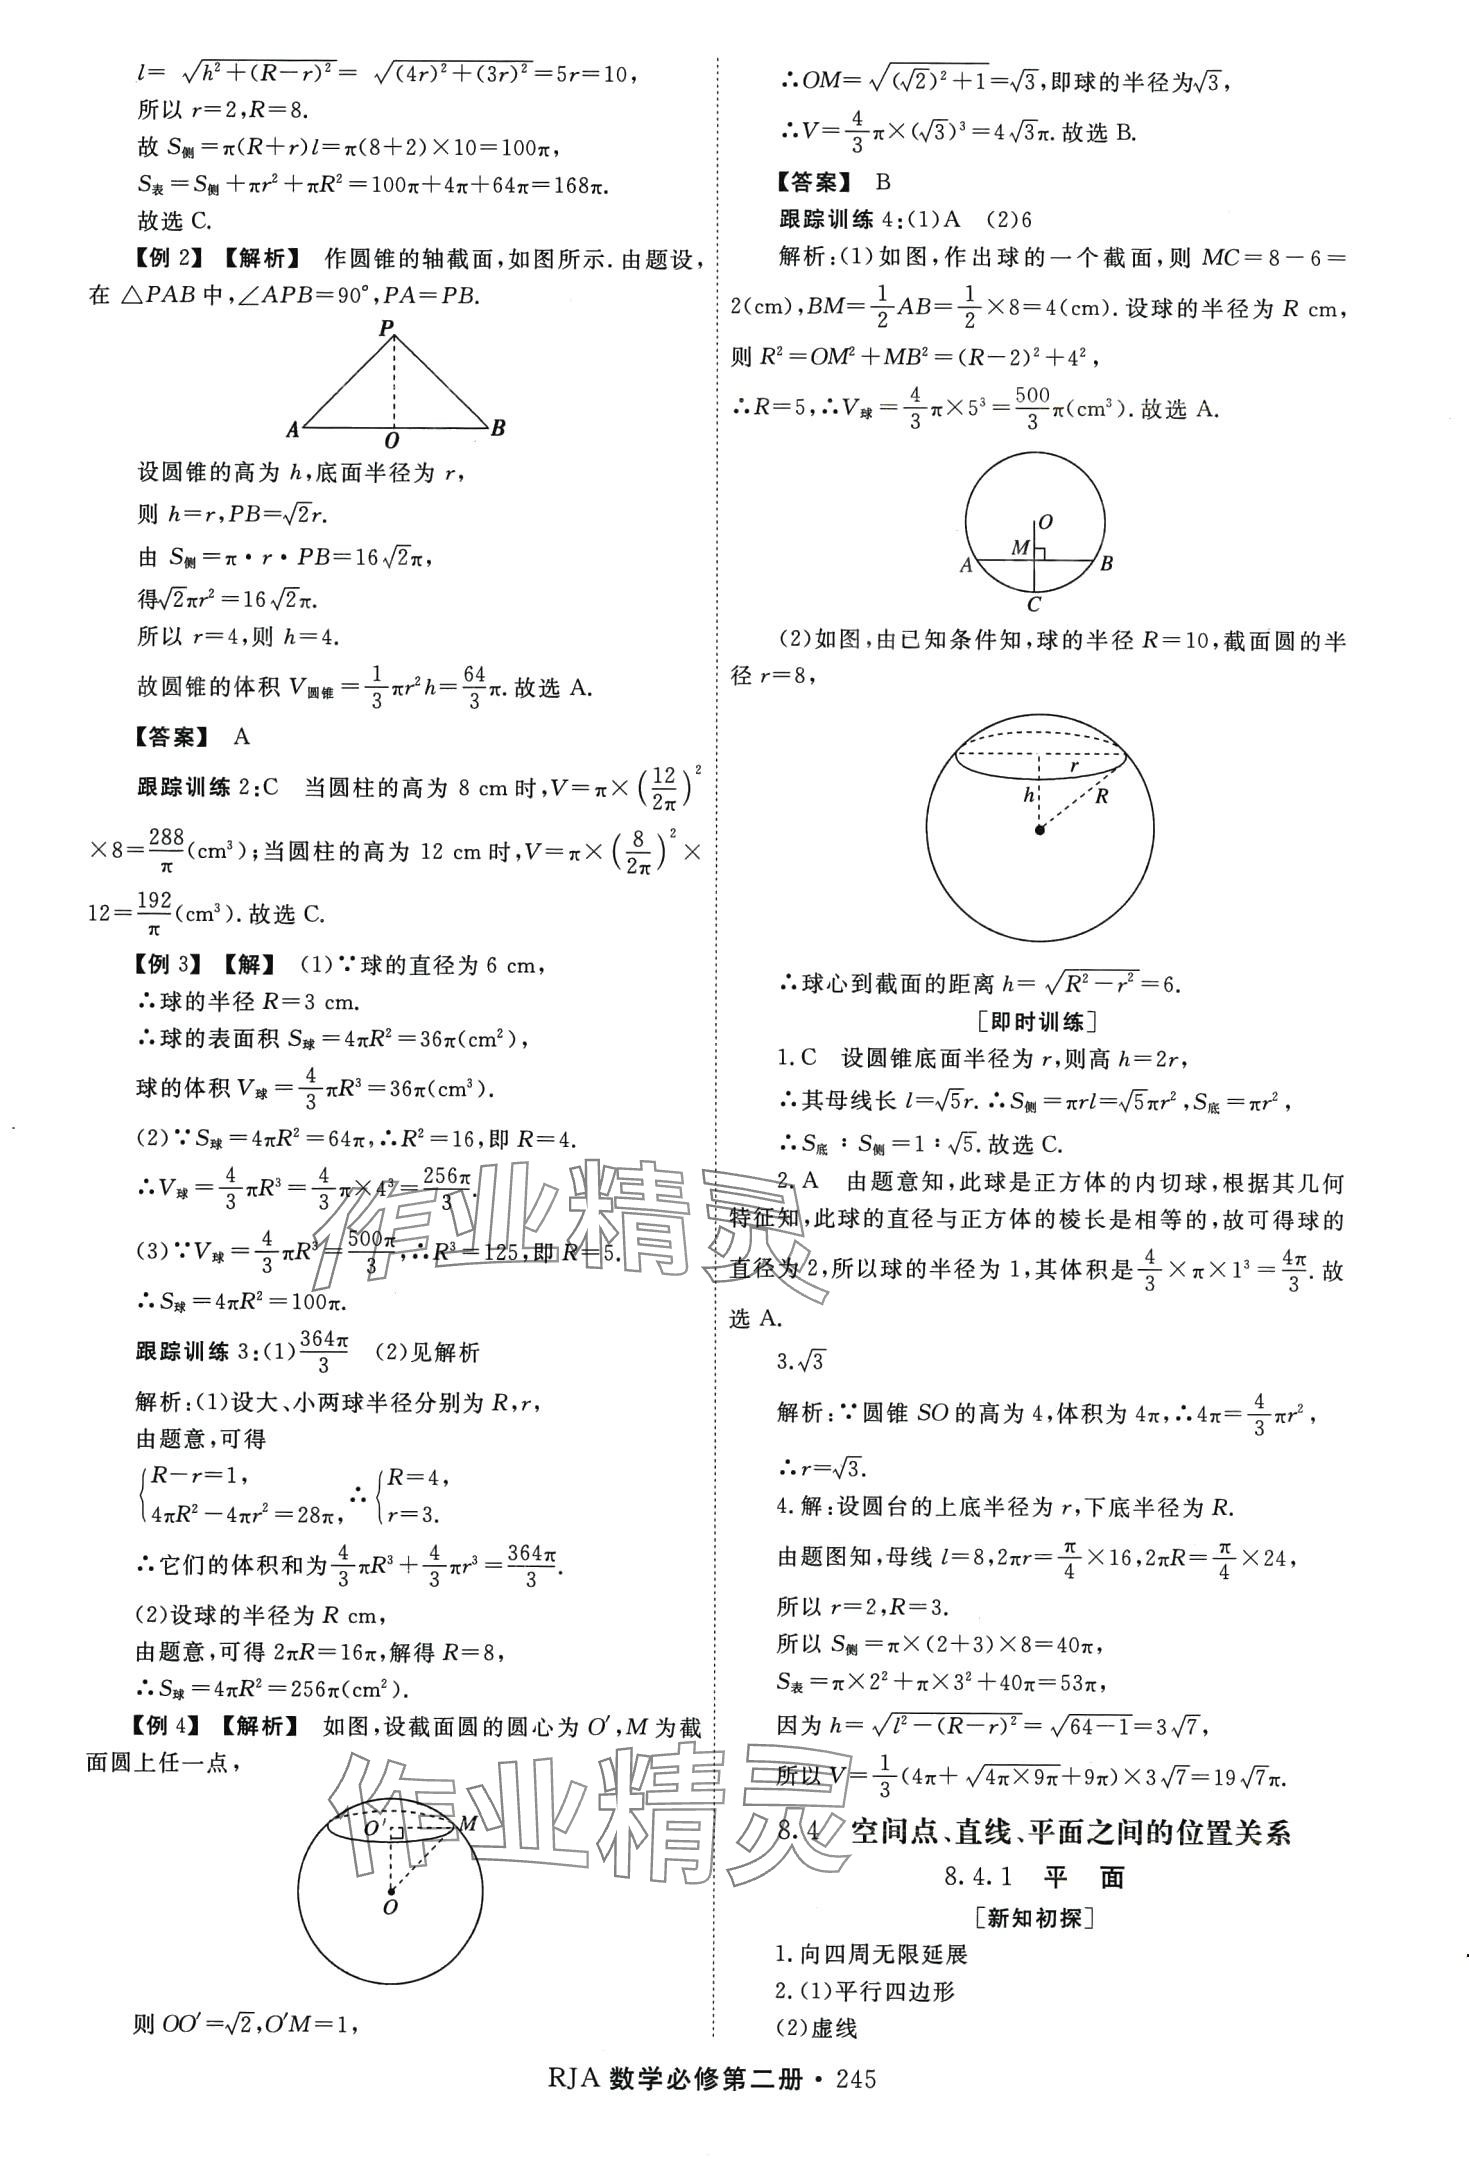 l= √(h²+(R−r)²)= √((4r)²+(3r)²)=5r=10,
所以 r=2,R=8.
故 S侧=π(R+r)l=π(8+2)×10=100π,
S表=S侧+πr²+πR²=100π+4π+64π=168π.
故选 C.
【例 2】【解析】 作圆锥的轴截面,如图所示.由题设,
在 △PAB 中,∠APB=90°,PA=PB.
P
A
O
B
设圆锥的高为 h,底面半径为 r,
则 h=r,PB=√2r.
由 S侧=π·r·PB=16√2π,
得√2πr²=16√2π.
所以 r=4,则 h=4.
故圆锥的体积 V圆锥=1/3πr²h=64/3π.故选 A.
【答案】 A
跟踪训练 2:C 当圆柱的高为 8 cm 时,V=π×(12/2π)²
×8=288/π(cm³);当圆柱的高为 12 cm 时,V=π×(8/2π)²×
12=192/π(cm³).故选 C.
【例 3】【解】 (1)∵球的直径为 6 cm,
∴球的半径 R=3 cm.
∴球的表面积 S球=4πR²=36π(cm²),
球的体积 V球=4/3πR³=36π(cm³).
(2)∵S球=4πR²=64π,∴R²=16,即 R=4.
∴V球=4/3πR³=4/3π×4³=256π/3.
(3)∵V球=4/3πR³=500π/3,∴R³=125,即 R=5.
∴S球=4πR²=100π.
跟踪训练 3:(1)364π/3 (2)见解析
解析:(1)设大、小两球半径分别为 R,r,
由题意,可得
{R−r=1, 4πR²−4πr²=28π, ∴{R=4, r=3.
∴它们的体积和为4/3πR³+4/3πr³=364π/3.
(2)设球的半径为 R cm,
由题意,可得 2πR=16π,解得 R=8,
∴S球=4πR²=256π(cm²).
【例 4】【解析】 如图,设截面圆的圆心为 O′,M 为截
面圆上任一点,
O′
M
O
则 OO′=√2,O′M=1,
∴OM=√((√2)²+1)=√3,即球的半径为√3,
∴V=4/3π×(√3)³=4√3π.故选 B.
【答案】 B
跟踪训练 4:(1)A (2)6
解析:(1)如图,作出球的一个截面,则 MC=8−6=
2(cm),BM=1/2AB=1/2×8=4(cm).设球的半径为 R cm,
则 R²=OM²+MB²=(R−2)²+4²,
∴R=5,∴V球=4/3π×5³=500/3π(cm³).故选 A.
O
M
A
B
C
(2)如图,由已知条件知,球的半径 R=10,截面圆的半
径 r=8,
r
h
R
∴球心到截面的距离 h= √(R²−r²)=6.
[即时训练]
1.C 设圆锥底面半径为 r,则高 h=2r,
∴其母线长 l=√5r.∴S侧=πrl=√5πr²,S底=πr²,
∴S底∶S侧=1∶√5.故选 C.
2.A 由题意知,此球是正方体的内切球,根据其几何
特征知,此球的直径与正方体的棱长是相等的,故可得球的
直径为 2,所以球的半径为 1,其体积是4/3×π×1³=4π/3.故
选 A.
3.√3
解析:∵圆锥 SO 的高为 4,体积为 4π,∴4π=4/3πr²,
∴r=√3.
4.解:设圆台的上底半径为 r,下底半径为 R.
由题图知,母线 l=8,2πr=π/4×16,2πR=π/4×24,
所以 r=2,R=3.
所以 S侧=π×(2+3)×8=40π,
S表=π×2²+π×3²+40π=53π,
因为 h= √(l²−(R−r)²)= √(64−1)=3√7,
所以 V=1/3(4π+√(4π×9π)+9π)×3√7=19√7π.
8.4 空间点、直线、平面之间的位置关系
8.4.1 平 面
[新知初探]
1.向四周无限延展
2.(1)平行四边形
(2)虚线
RJA 数学必修第二册·245
作业精灵
作业精灵